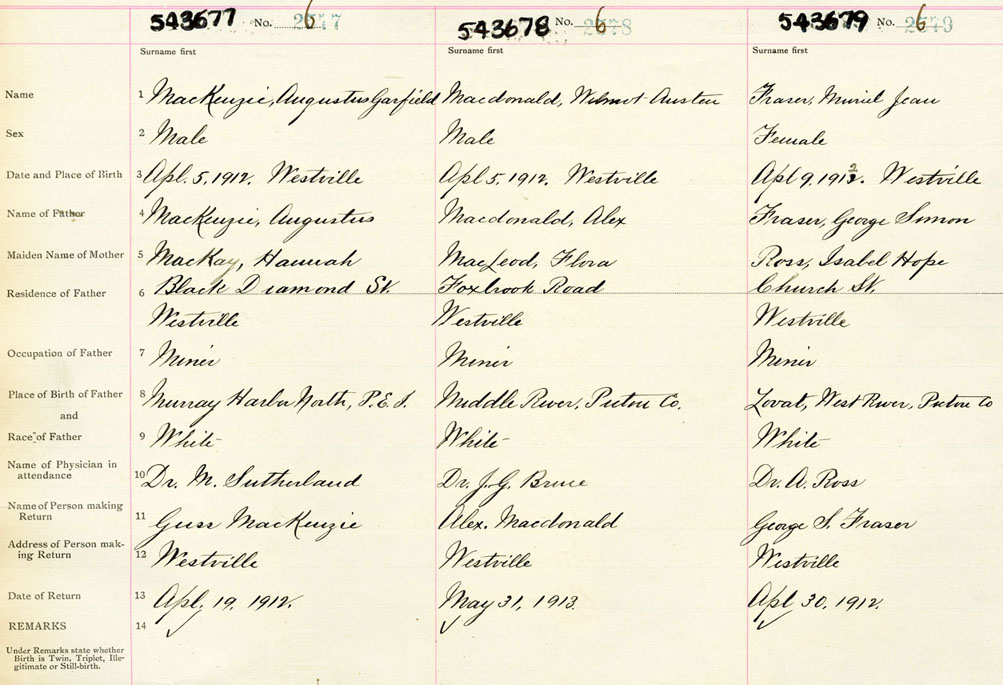 543677 No. 6 2577 543678 No. 6 2578 543679 No. 6 2579
Surname first Surname first Surname first
Name 1 MacKenzie, Augustus Garfield Macdonald, Wilmot Austen Fraser, Muriel Jean
Sex 2 Male Male Female
Date and Place of Birth 3 Apl. 5, 1912. Westville Apl 5, 1912. Westville Apl 9, 1912. Westville
Name of Father 4 MacKenzie, Augustus Macdonald, Alex Fraser, George Simon
Maiden Name of Mother 5 MacKay, Hannah MacLeod, Flora Ross, Isabel Hope
Residence of Father 6 Black Diamond St. Foxbrook Road Church St.
Westville Westville Westville
Occupation of Father 7 Miner Miner Miner
Place of Birth of Father 8 Murray Harbor North, P.E.I. Middle River, Pictou Co. Lovat, West River, Pictou Co
and
Race of Father 9 White White White
Name of Physician in
attendance 10 Dr. M. Sutherland Dr. J. G. Bruce Dr. A. Ross
Name of Person making
Return 11 Guss MacKenzie Alex. Macdonald George S. Fraser
Address of Person mak-
ing Return 12 Westville Westville Westville
Date of Return 13 Apl. 19, 1912. May 31, 1913. Apl 30, 1912.
REMARKS 14
Under Remarks state whether
Birth is Twin, Triplet, Ille-
gitimate or Still-birth.